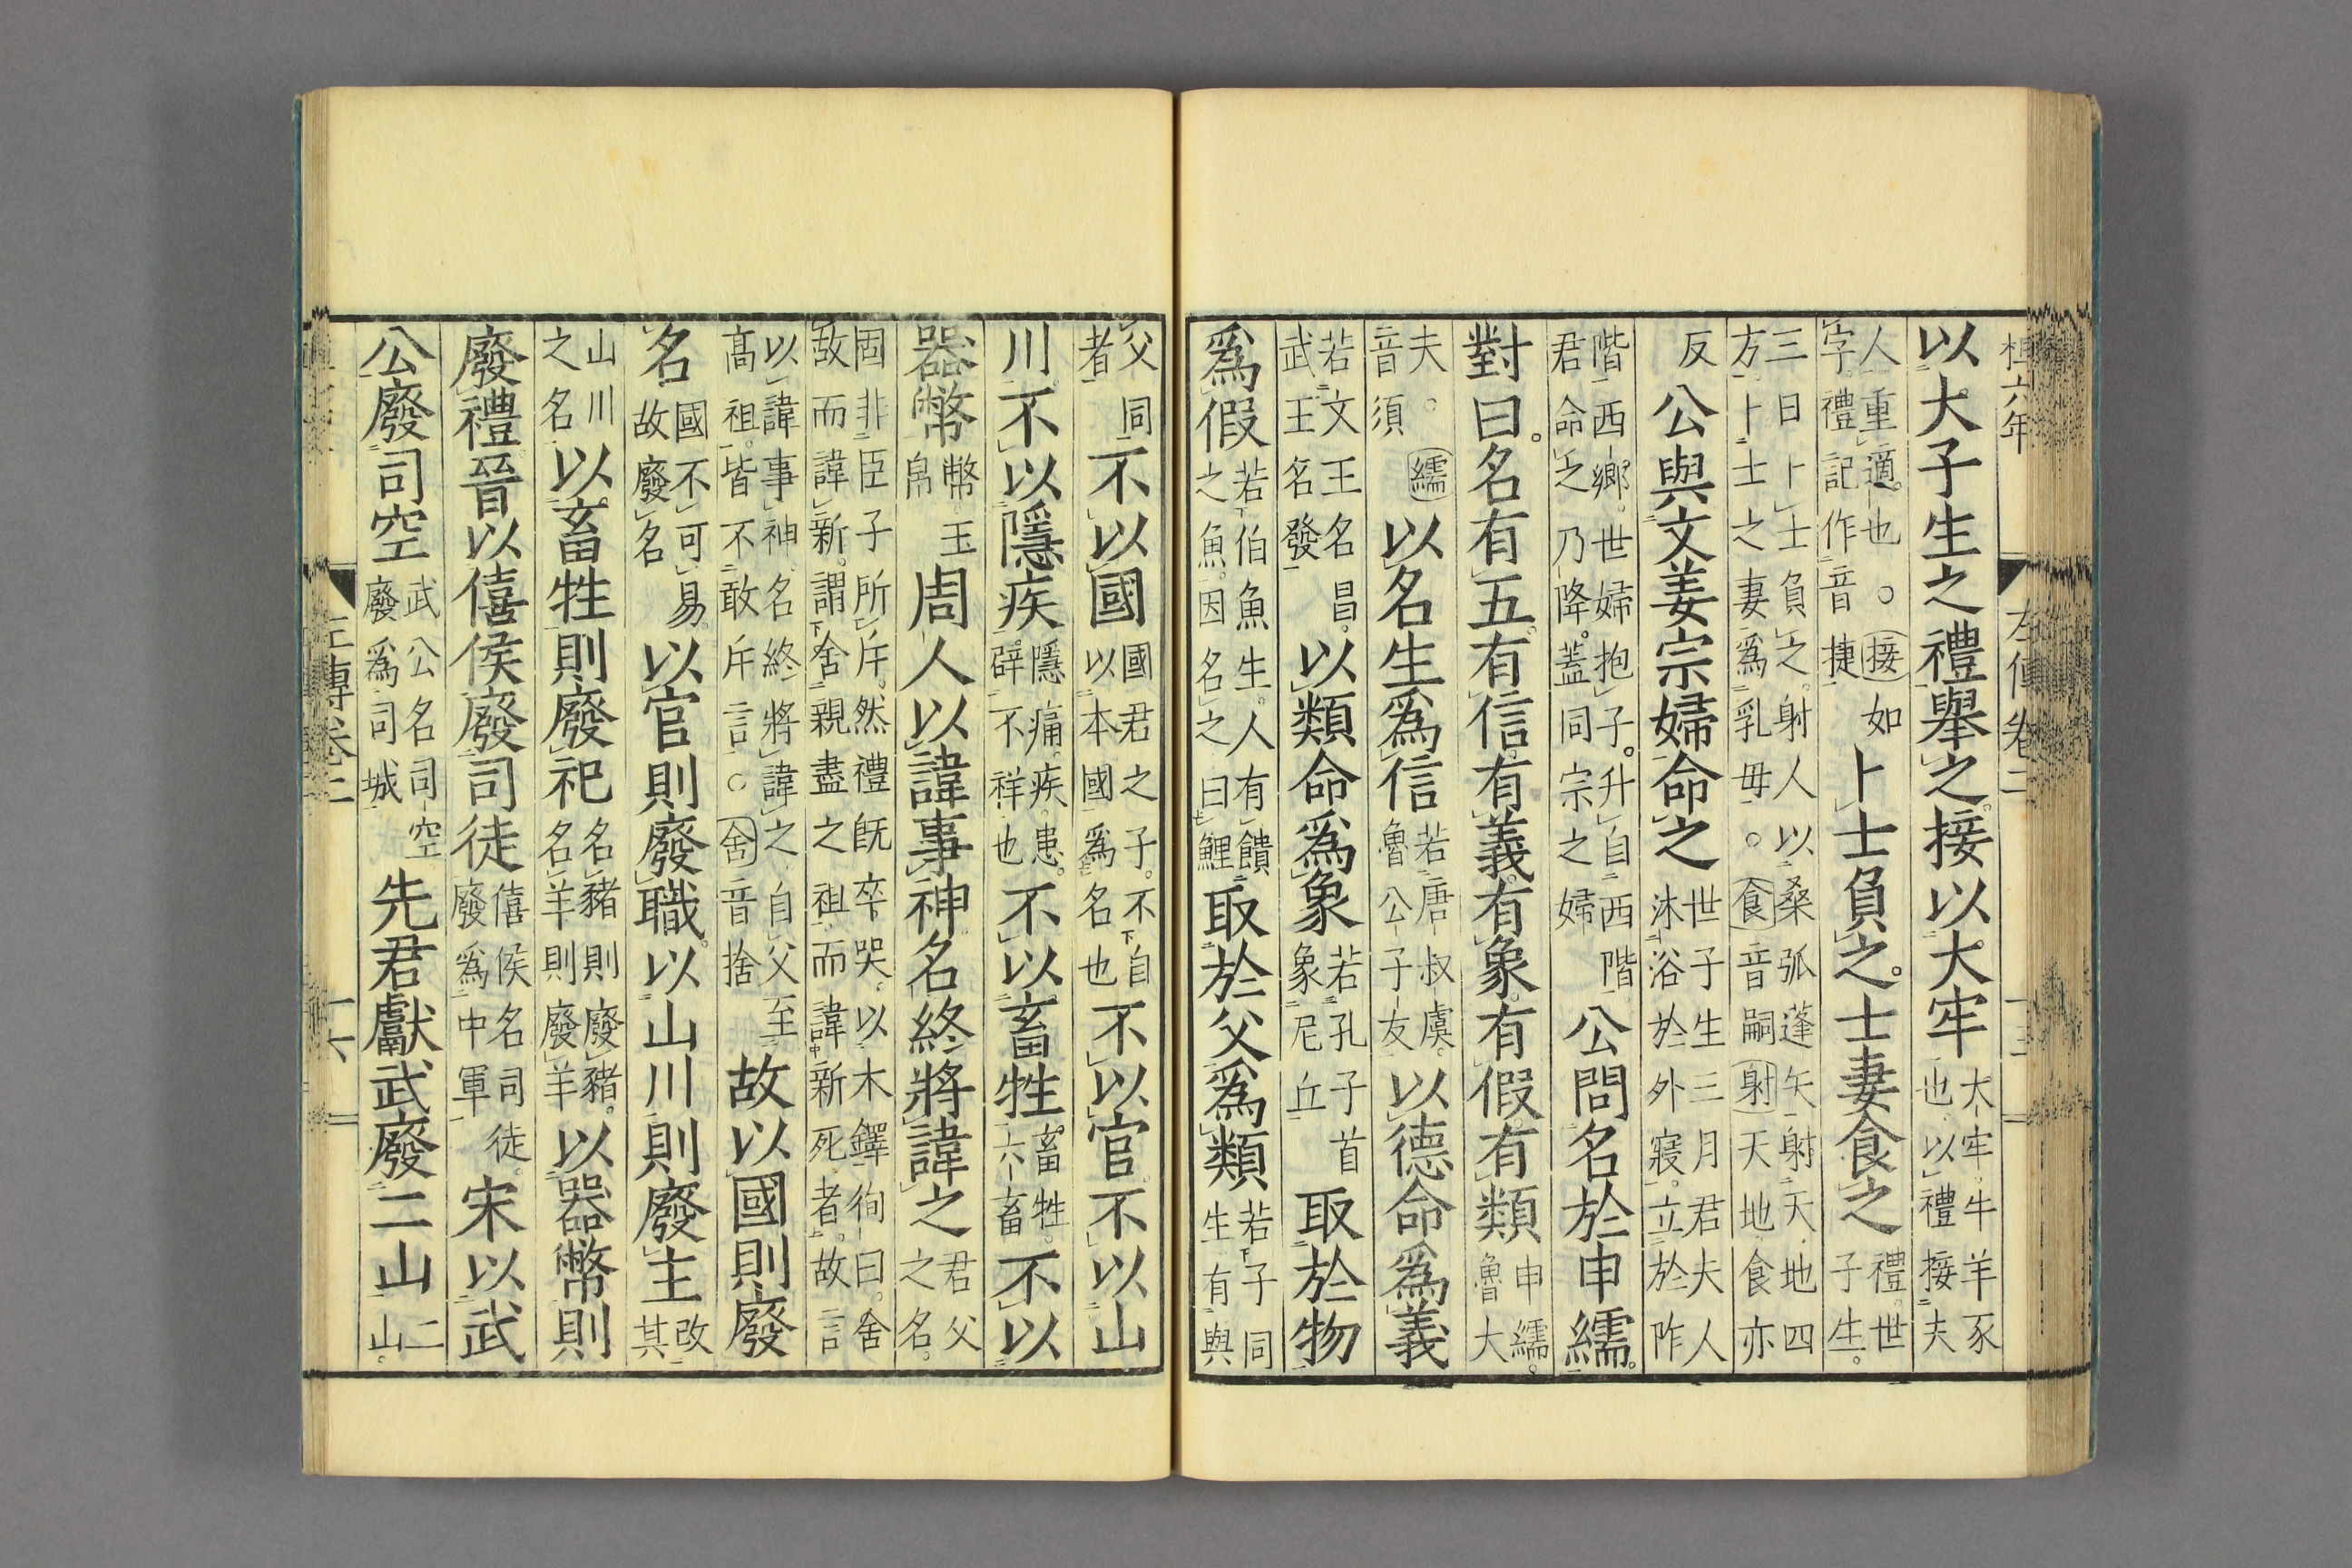 桓六年 左傳卷二
以大子生之禮舉之。接以大牢大牢。牛羊豕也。以禮接夫
人重適。也。○接如字。禮記作音捷卜士負之。士妻食之禮。世子生。
三日卜士負之。射人以桑弧蓬矢射天地四方。卜士之妻爲乳母。○食音嗣射天地食亦
反公與文姜宗婦命之世子生三月君夫人沐浴於外寢。立於阼
階西鄉。世婦抱子。升自西階。君命乏乃降。蓋同宗之婦公問名於申繻。
對曰。名有五。有信。有義。有象。有假。有類申繻。魯大
夫。○繻音須以名生爲信若唐叔虞。魯公子友以德命爲義
若文王名昌。武王名發以類命爲象若孔子首象尼丘取於物
爲假若伯魚生。人有饋之魚。因名之曰鯉取於父爲類若子同生有與
父同者不以國國君之子。不自以本國爲名也不以官。不以山
川。不以隱疾。隱痛。疾患。辟不祥也不以畜牲。畜牲。六畜不以
器幣幣玉帛周人以諱事神。名終將諱之君父之名。
固非臣子所斥。然禮旣卒哭。以木鐸徇曰。舍故而諱新。謂舍親盡之祖而諱新死者。故言
以諱事神名終將諱之自父至高祖。皆不敢斥言。○舍音捨故以國則廢
名國不可易。故廢名以官則廢職。以山川則廢主改其
山川之名以畜牲則廢祀名豬則廢豬。名羊則廢羊以器幣則
廢禮晉以僖侯廢司徒僖侯名司徒。廢爲中軍宋以武
公廢司空武公名司空廢爲司城先君獻武廢二山二山。
左傳卷二 十六